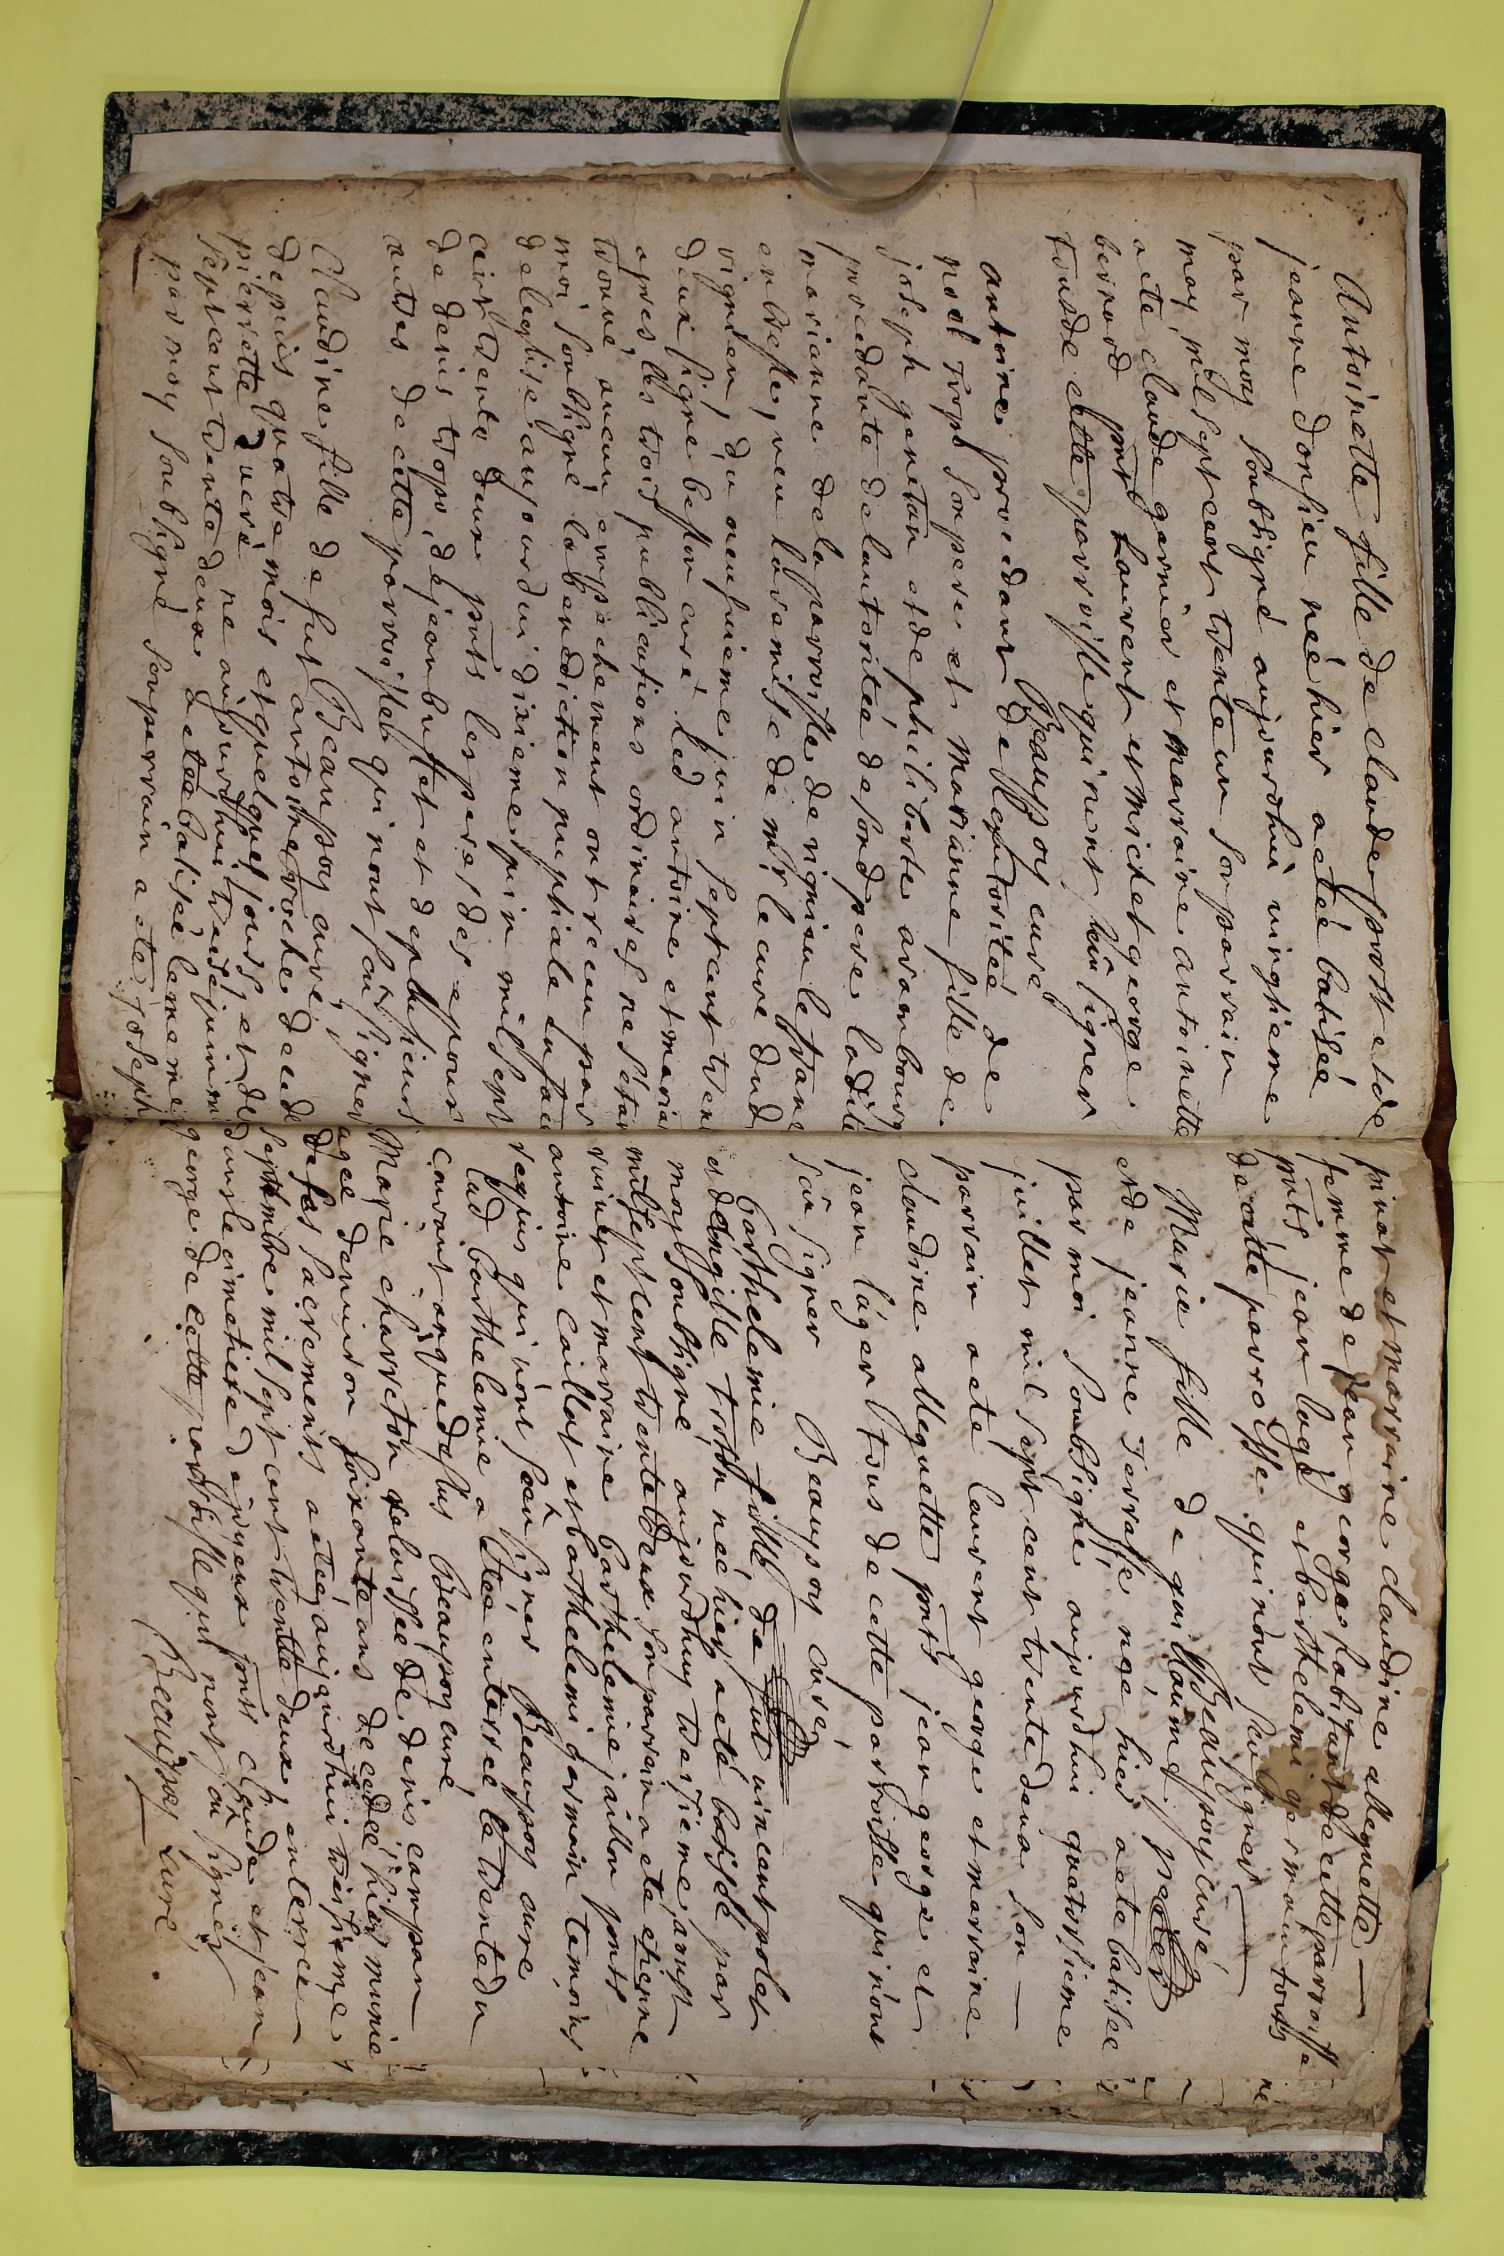 Antoinette fille de claude prost et de
jeanne donsieu néé hier a etéé batiséé
par moy soubsigné aujourdhui vingtieme
may mil sept cent trente un son parrain
a ete claude garnier et marraine antoinette
berirard pnts Laurent et michel george
tous de cette parroisse qui nont sçu signer
Beaupoy curé
antoine procedant de l'autoritéé de
noel trops son pere et marianne fille de
joseph genetan et de philiberte arambourg
procedante de lautoritéé de sond pere ladite
marianne de la parroisse de vignieu letrane
en bresse, veu la remise de mr le curé dud
vignieu, du neufvieme juin sept cent tren
deux signé besson curé led antoine et maria
apres les trois publications ordinaires ne sétan
trouvé aucun empechement ont receu par
moi soubsigné la benediction nuptiale
de leglise aujourdui dixieme juin mil sept
cent trente deux pnts les peres des epoux
de denis trops, de jean buffet et de plusieurs
autres de cette parroisse qui nont sçu signer
Beaupoy curé
Claudine fille de fut antoine roche decede
depuis quatre mois et quelques jours et de
pierrette ducré ne aujourdhui treize juin mil
sept cent trente deux a etéé batiséé le meme
par moy soubsigné son parrain a ete joseph
pinat et marraine claudine alleguette
femme de jean george habitant de cette parroisse
pnts jean lagé et barthelemi germain tous
de cette parroisse qui nont sçu signer
Beaupoy curé
Marie fille de guillaume
et de jeanne Terrasse nee hier a ete batisee
par moi soubsigné aujourdhui quatorsieme
juillet mil sept cent trente deux son
parrain a ete laurent george et marraine
claudine alleguette pnts jean george et
jean lager tous de cette parroisse qui nont
sçu signer Beaupoy curé
barthelemie fille de fut vincent polet
et dangille troin néé hier a eté batiséé par
moy soubsigné aujourdhuy treisieme aoust
mil sept cent trente deux son parrain a ete etienne
vuiner et marraine barthelemie jaillon pnts
antoine caillot et barthelemi germain temoins
requis qui nont sçeu signer Beaupoy cure
Lad barthelemie a etéé enterréé le trente du
courant que dessus Beaupoy curé
Marie charreton relaisséé de denis campan
agee denviron soixante ans decedéé hier munie
de ses sacrements a etéé aujourdhui troisieme
septembre mil sept cent trente deux enterree
dans le cimetiere d pnts claude et jean
george de cette parroisse qui nont sçu signer
Beaupoy curé